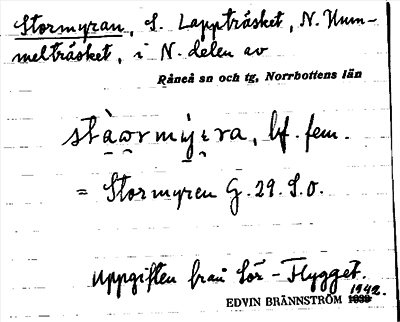 Stormyran, S. Lappträsket, N. Hum-
melträsket, i N. delen av
Råneå sn och tg, Norrbottens län
stàωrmy̩ɩra, bf. fem.
= Stormyren G. 29. S.O.
Uppgiften från Sör-Flygget.
1942.
EDVIN BRÄNNSTRÖM 1939